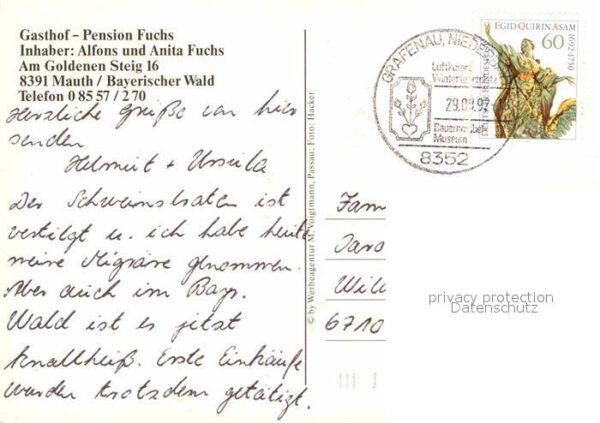 Gasthof – Pension Fuchs
Inhaber: Alfons und Anita Fuchs
Am Goldenen Steig 16
8391 Mauth / Bayerischer Wald
Telefon 0 85 57 / 2 70
Herzliche Grüße von hier
senden
Helmut + Ursula
Der Schweinsbraten ist
vertilgt u. ich habe heute
meine Migräne genommen.
Aber auch im Bayr.
Wald ist es jetzt
knallheiß. Erste Einkäufe
wurden trotzdem getätigt.
© by Werbeagentur M. Voigtmann, Passau; Foto: Hacker
GRAFENAU, NIEDER
Luftkurort
Wintersportplatz
Bauernmöbel
Museum
8352
EGID QUIRIN ASAM
1692-1750
60
Fam
Wil
6710
privacy protection
Datenschutz